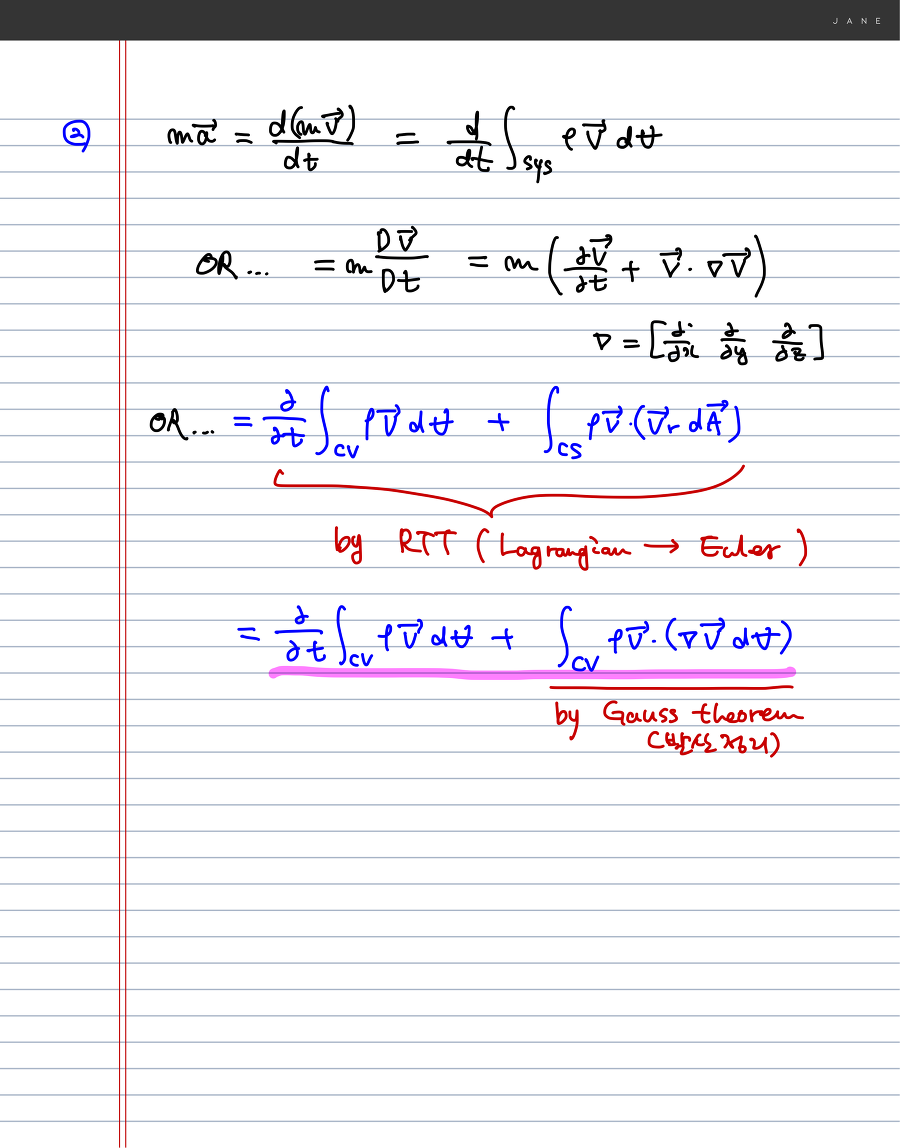 JANE
② ma⃗ = d(mV⃗)/dt = d/dt ∫sys ρV⃗ dV̶
OR... = m DV⃗/Dt = m(∂V⃗/∂t + V⃗·∇V⃗)
∇ = [∂/∂x ∂/∂y ∂/∂z]
OR... = ∂/∂t ∫CV ρV⃗ dV̶ + ∫CS ρV⃗·(V⃗r dA⃗)
by RTT (Lagrangian → Euler)
= ∂/∂t ∫CV ρV⃗ dV̶ + ∫CV ρV⃗·(∇V⃗ dV̶)
by Gauss theorem
(발산정리)